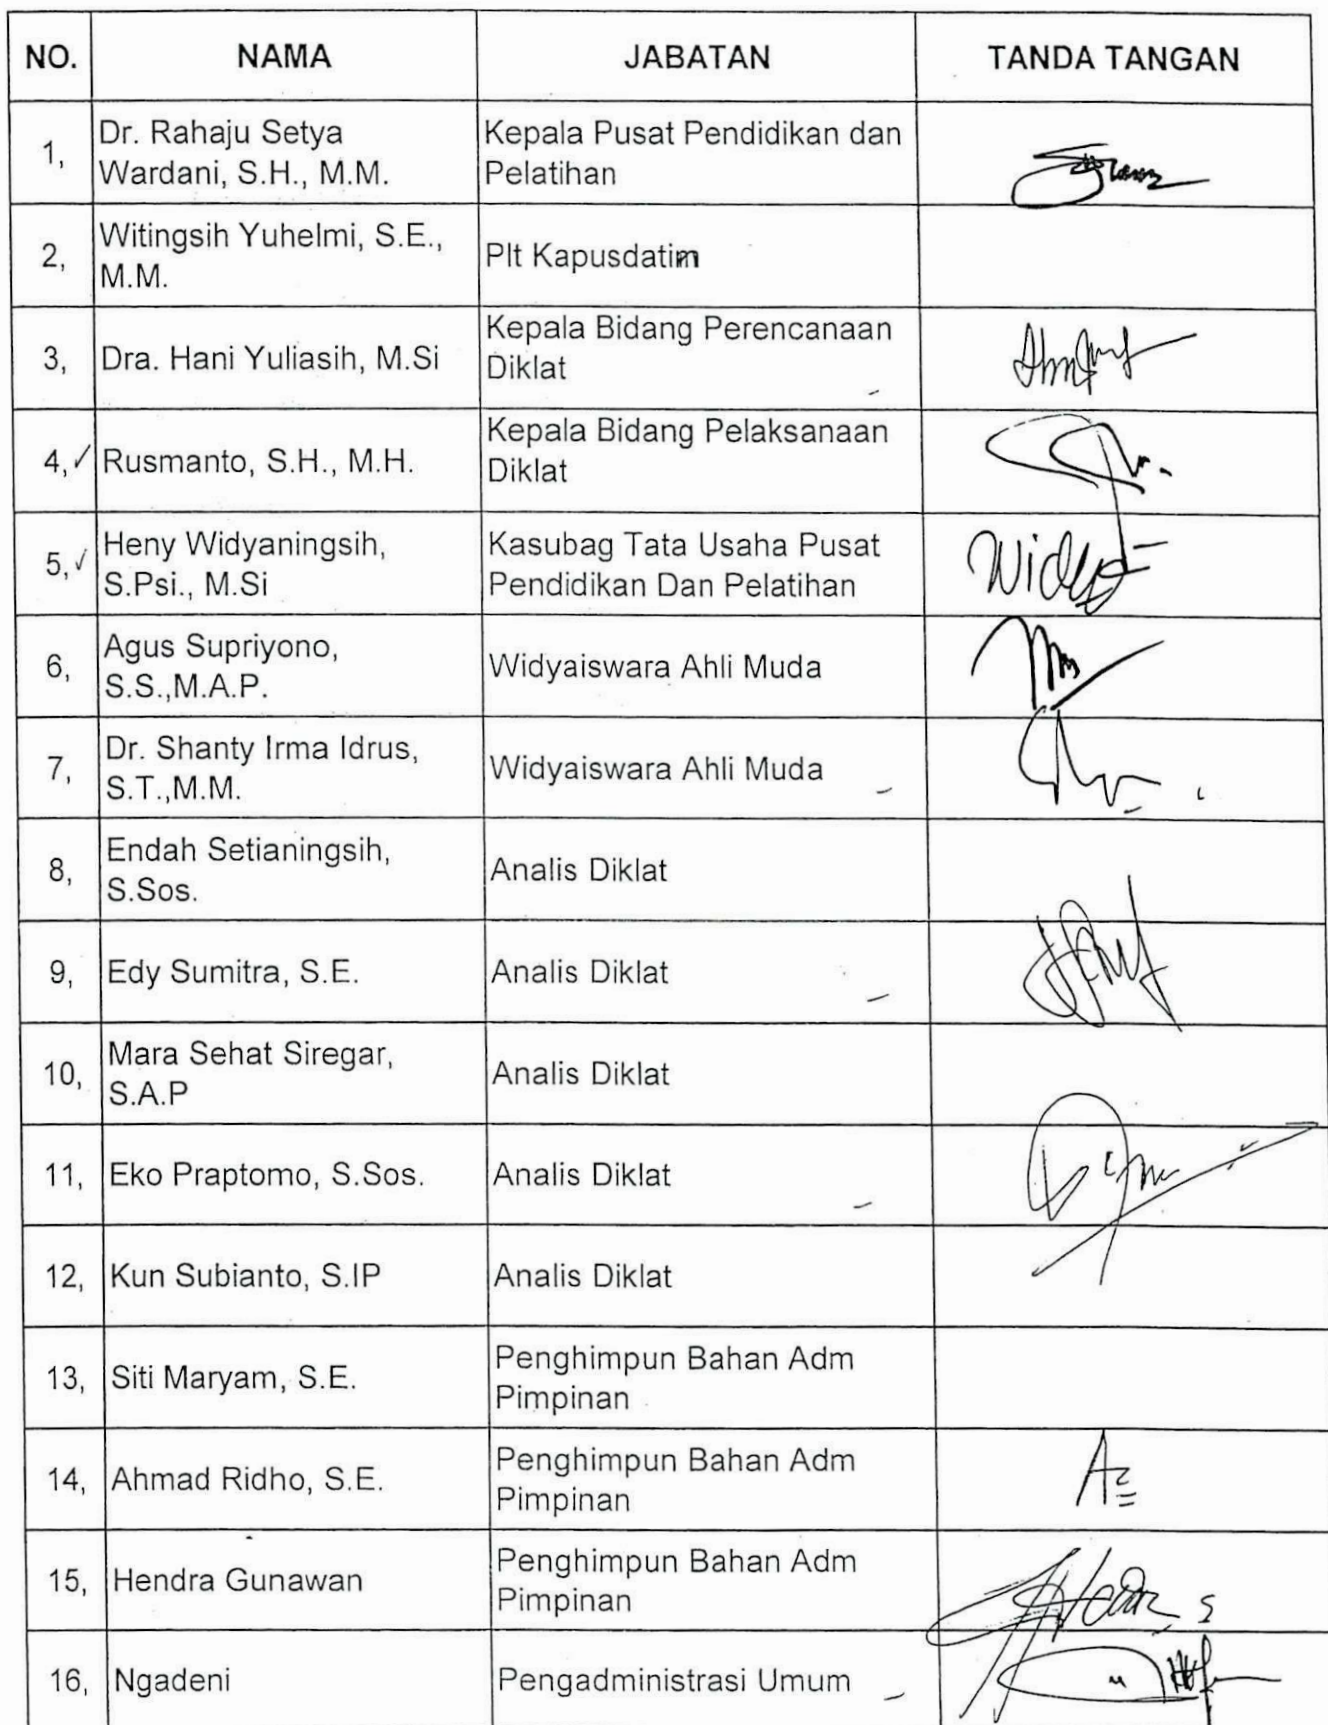 NO. NAMA JABATAN TANDA TANGAN
1, Dr. Rahaju Setya Kepala Pusat Pendidikan dan
Wardani, S.H., M.M. Pelatihan
2, Witingsih Yuhelmi, S.E., Plt Kapusdatim
M.M.
3, Dra. Hani Yuliasih, M.Si Kepala Bidang Perencanaan
Diklat
4, Rusmanto, S.H., M.H. Kepala Bidang Pelaksanaan
Diklat
5, Heny Widyaningsih, Kasubag Tata Usaha Pusat
S.Psi., M.Si Pendidikan Dan Pelatihan
6, Agus Supriyono, Widyaiswara Ahli Muda
S.S.,M.A.P.
7, Dr. Shanty Irma Idrus, Widyaiswara Ahli Muda
S.T.,M.M.
8, Endah Setianingsih, Analis Diklat
S.Sos.
9, Edy Sumitra, S.E. Analis Diklat
10, Mara Sehat Siregar, Analis Diklat
S.A.P
11, Eko Praptomo, S.Sos. Analis Diklat
12, Kun Subianto, S.IP Analis Diklat
13, Siti Maryam, S.E. Penghimpun Bahan Adm
Pimpinan
14, Ahmad Ridho, S.E. Penghimpun Bahan Adm
Pimpinan
15, Hendra Gunawan Penghimpun Bahan Adm
Pimpinan
16, Ngadeni Pengadministrasi Umum